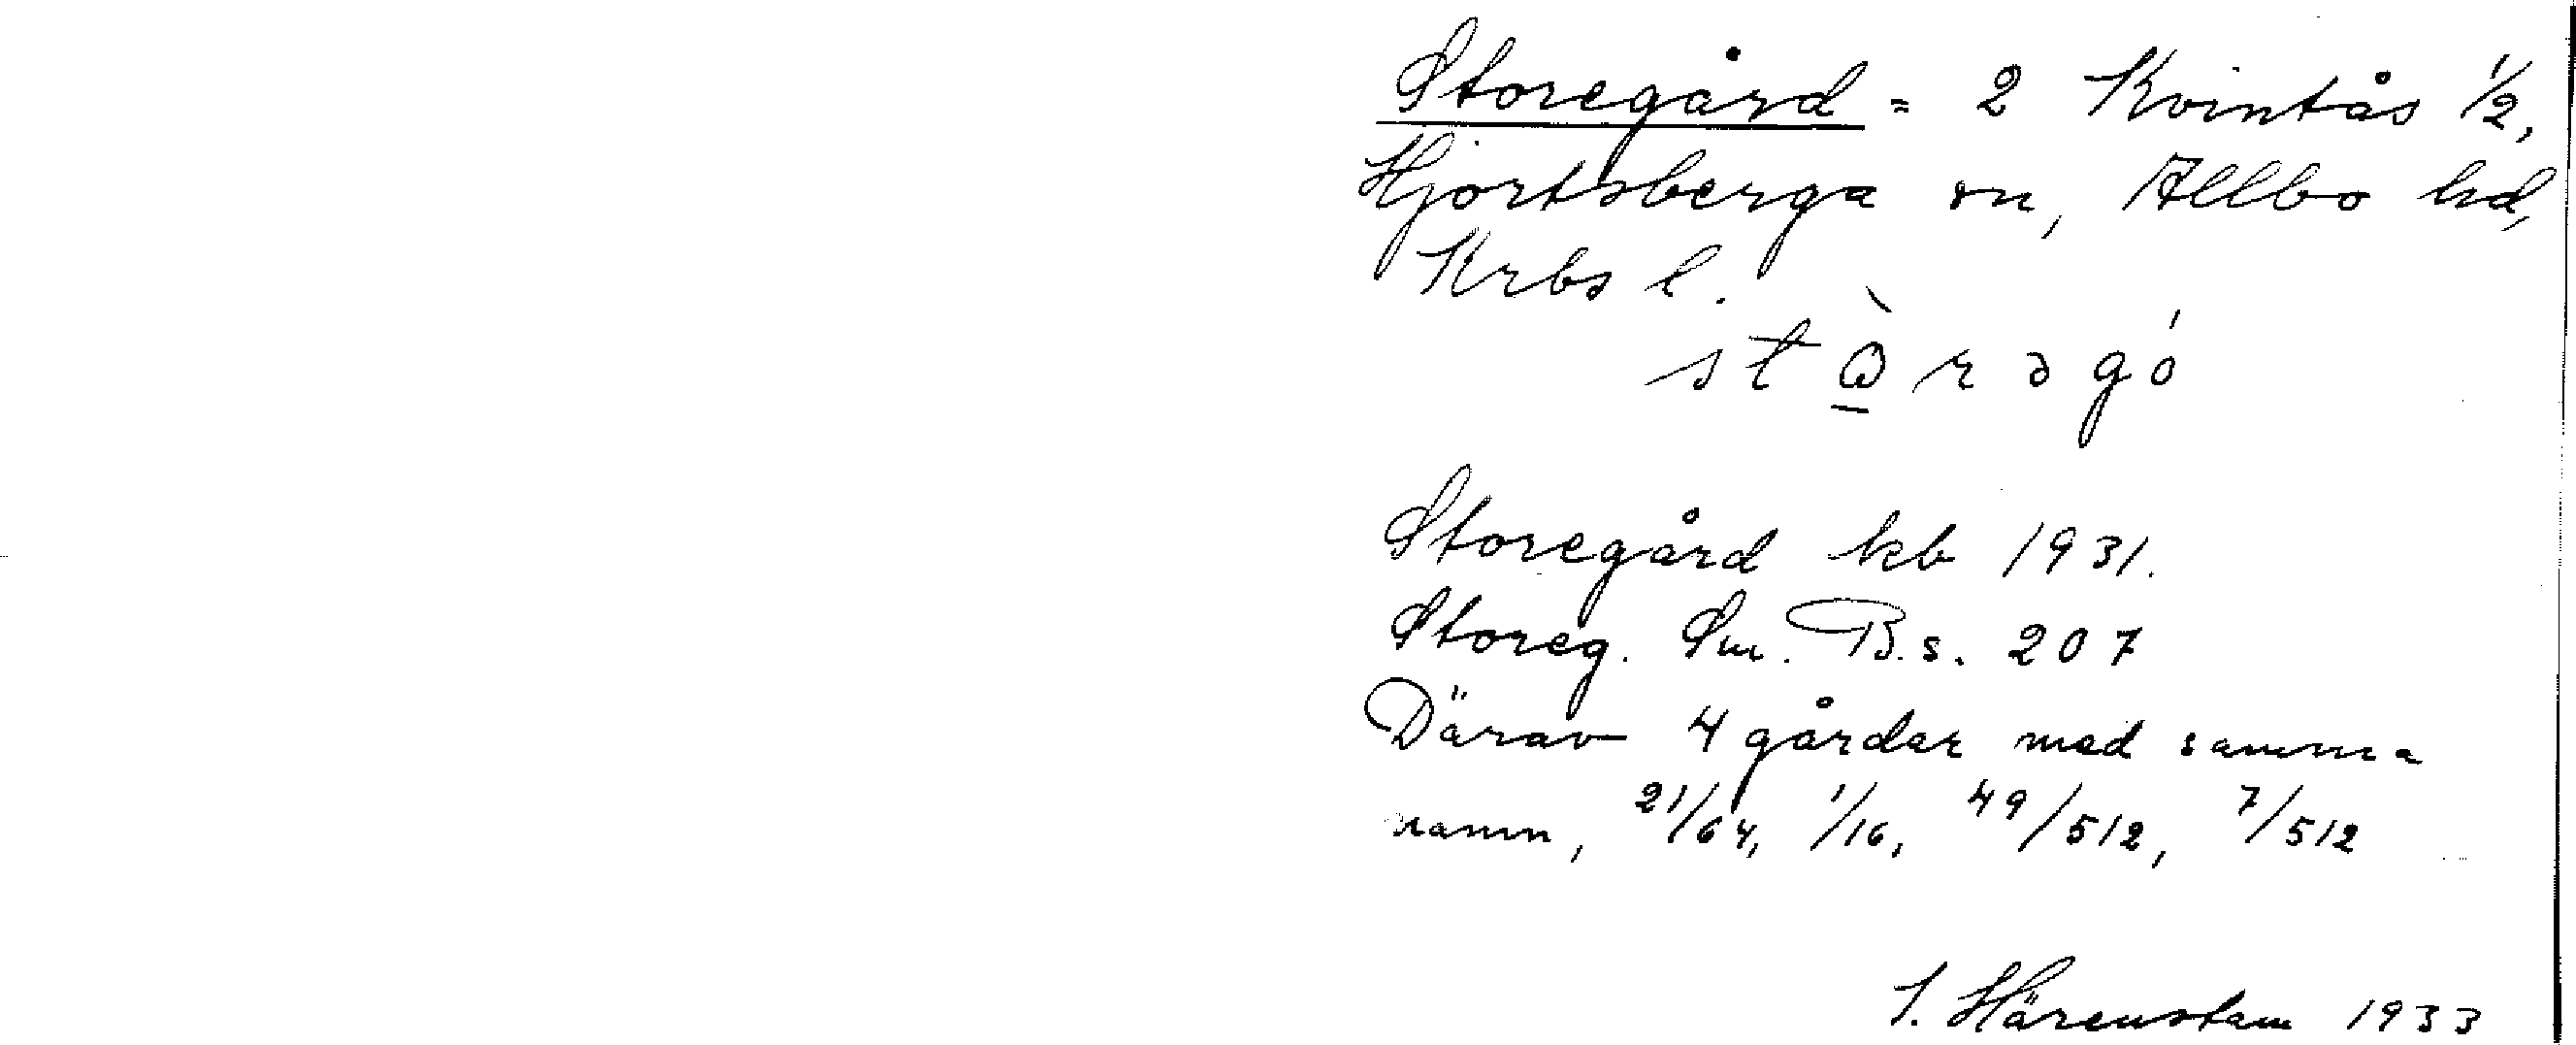 Storegård = 2 Kvintås 1/2,
Hjortsberga sn, Allbo hd,
Krbs l.
stò̱rəgó
Storegård kb 1931.
Storeg. Sm. B. s. 207
Därav 4 gårdar med samma
namn, 21/64, 1/16, 49/512, 7/512
S. Härenstam 1933